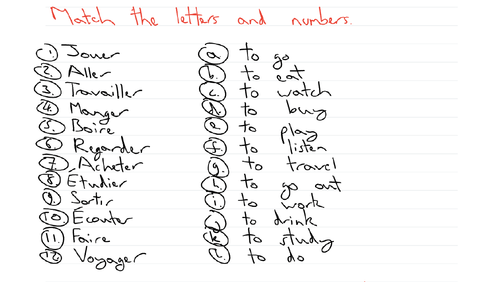 Match the letters and numbers.
1. Jouer a. to go
2. Aller b. to eat
3. Travailler c. to watch
4. Manger d. to buy
5. Boire e. to play
6. Regarder f. to listen
7. Acheter g. to travel
8. Étudier h. to go out
9. Sortir i. to work
10. Écouter j. to drink
11. Faire k. to study
12. Voyager l. to do